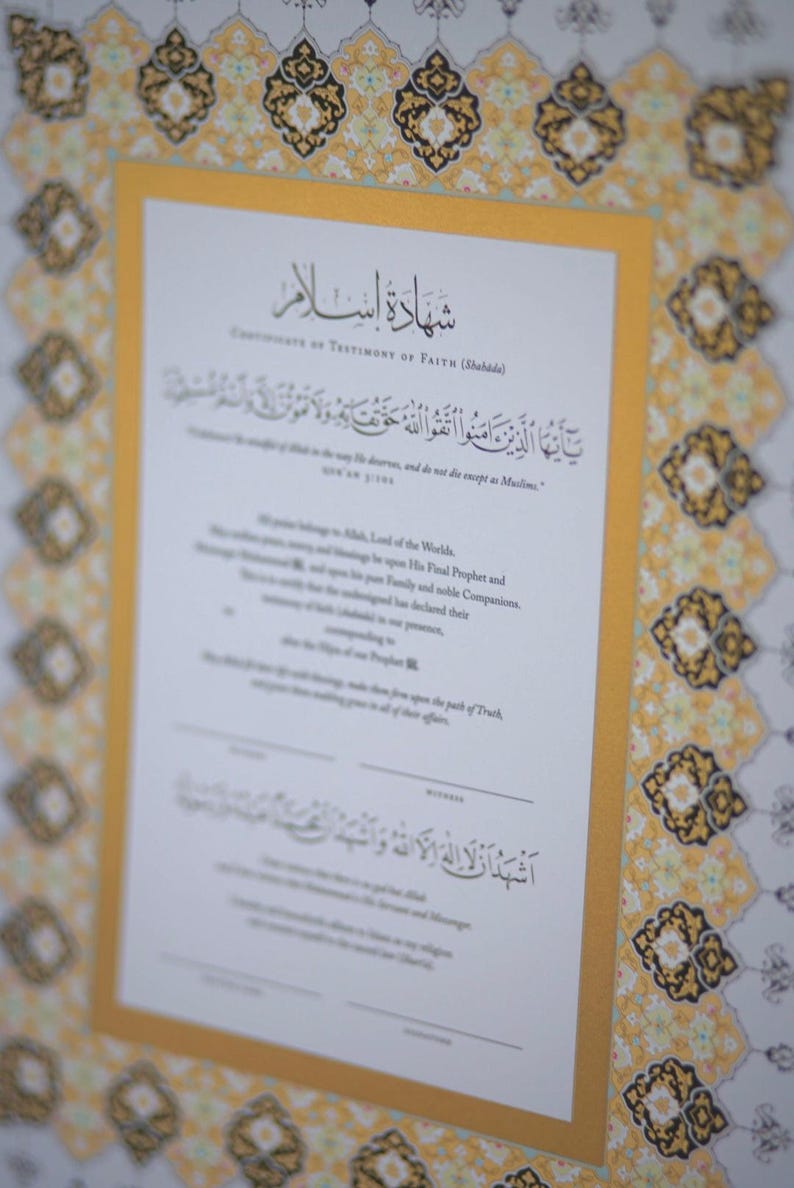 شَهَادَةُ إِسْلَام
Certificate of Testimony of Faith (Shahāda)
يَٰٓأَيُّهَا ٱلَّذِينَ ءَامَنُوا۟ ٱتَّقُوا۟ ٱللَّهَ حَقَّ تُقَاتِهِۦ وَلَا تَمُوتُنَّ إِلَّا وَأَنتُم مُّسْلِمُونَ
be mindful of Allah in the way He deserves, and do not die except as Muslims."
QUR'AN 3:102
All praise belongs to Allah, Lord of the Worlds.
May endless peace, mercy, and blessings be upon His Final Prophet and
Messenger Muhammad ﷺ, and upon his pure Family and noble Companions.
This is to certify that the undersigned has declared their
testimony of faith (shahāda) in our presence,
corresponding to
after the Hijra of our Prophet ﷺ.
May Allah fill their life with blessings, make them firm upon the path of Truth,
and grant them enabling grace in all of their affairs.
WITNESS
WITNESS
أَشْهَدُ أَنْ لَا إِلٰهَ إِلَّا اللهُ وَأَشْهَدُ أَنَّ مُحَمَّدًا عَبْدُهُ وَرَسُولُهُ
I bear witness that there is no god but Allah
and I bear witness that Muhammad is His Servant and Messenger.
SIGNATURE